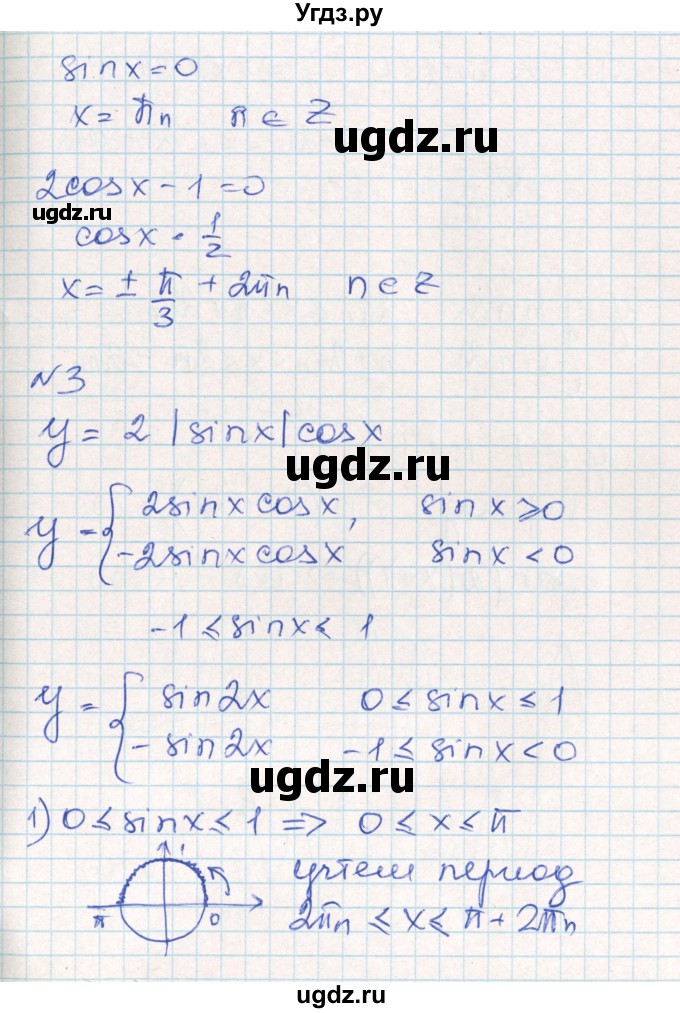 Угдз.ру
sin x = 0
x = πn n ∈ Z
ugdz.ru
2cos x - 1 = 0
ugdz.ru
cos x = 1/2
x = ± π/3 + 2πn n ∈ Z
№3
y = 2 |sin x| cos x
ugdz.ru
y = { 2sin x cos x, sin x ≥ 0
-2sin x cos x sin x < 0
-1 ≤ sin x ≤ 1
y = { sin 2x 0 ≤ sin x ≤ 1
- sin 2x -1 ≤ sin x < 0
ugdz.ru
1) 0 ≤ sin x ≤ 1 => 0 ≤ x ≤ π
1
учтем период
π 0
2πn ≤ x ≤ π + 2πn
ugdz.ru